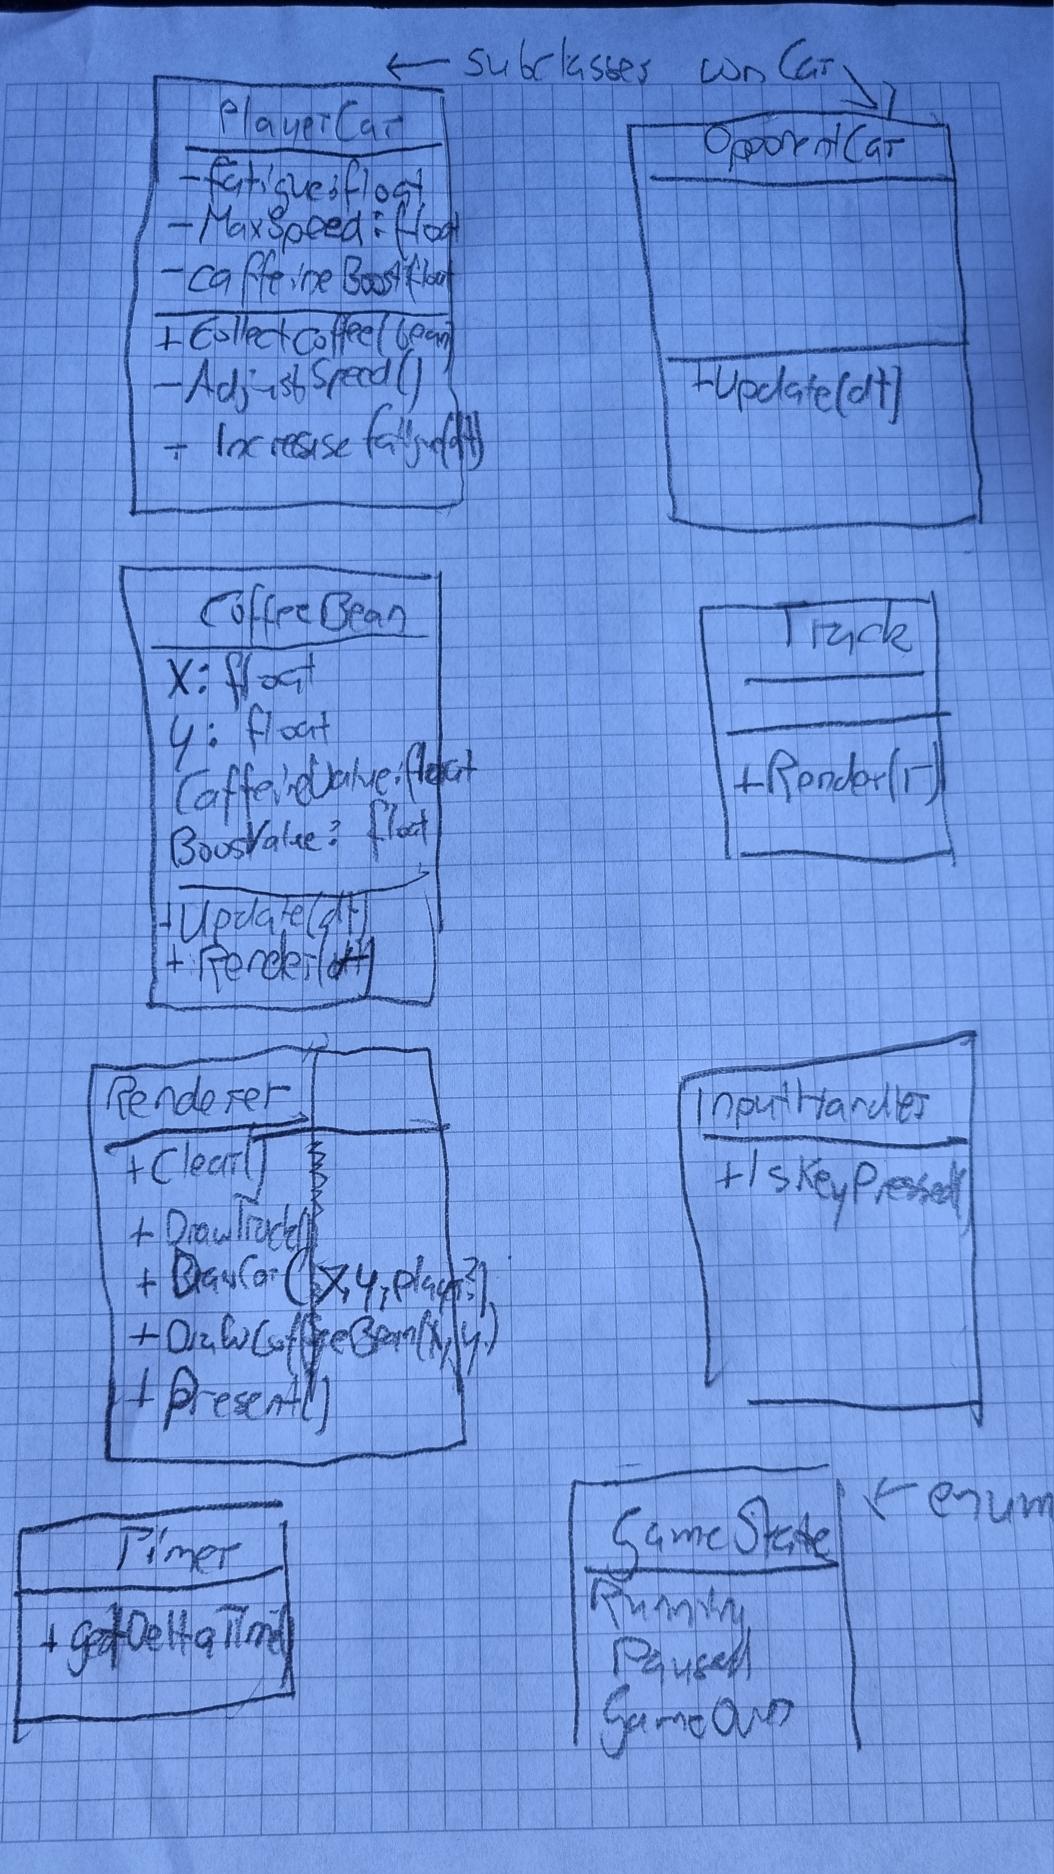 ← subclasses von Car
PlayerCar
- Fatigue: float
- MaxSpeed: float
- Caffeine Boost: float
+ CollectCoffee(bean)
- AdjustSpeed()
+ Incresise fatigue(dt)
OpponentCar
+Update(dt)
CoffeeBean
X: float
y: float
CaffeineValue: float
BoostValue: float
+Update(dt)
+ Render(dt)
Track
+Render(r)
Renderer
+Clear()
+ DrawTrack()
+ DrawCar(x,y,player?)
+DrawCoffeeBean(x,y)
+ Present()
InputHandler
+IsKeyPressed(
Timer
+ getDeltaTime()
GameState
← enum
Running
Paused
GameOver